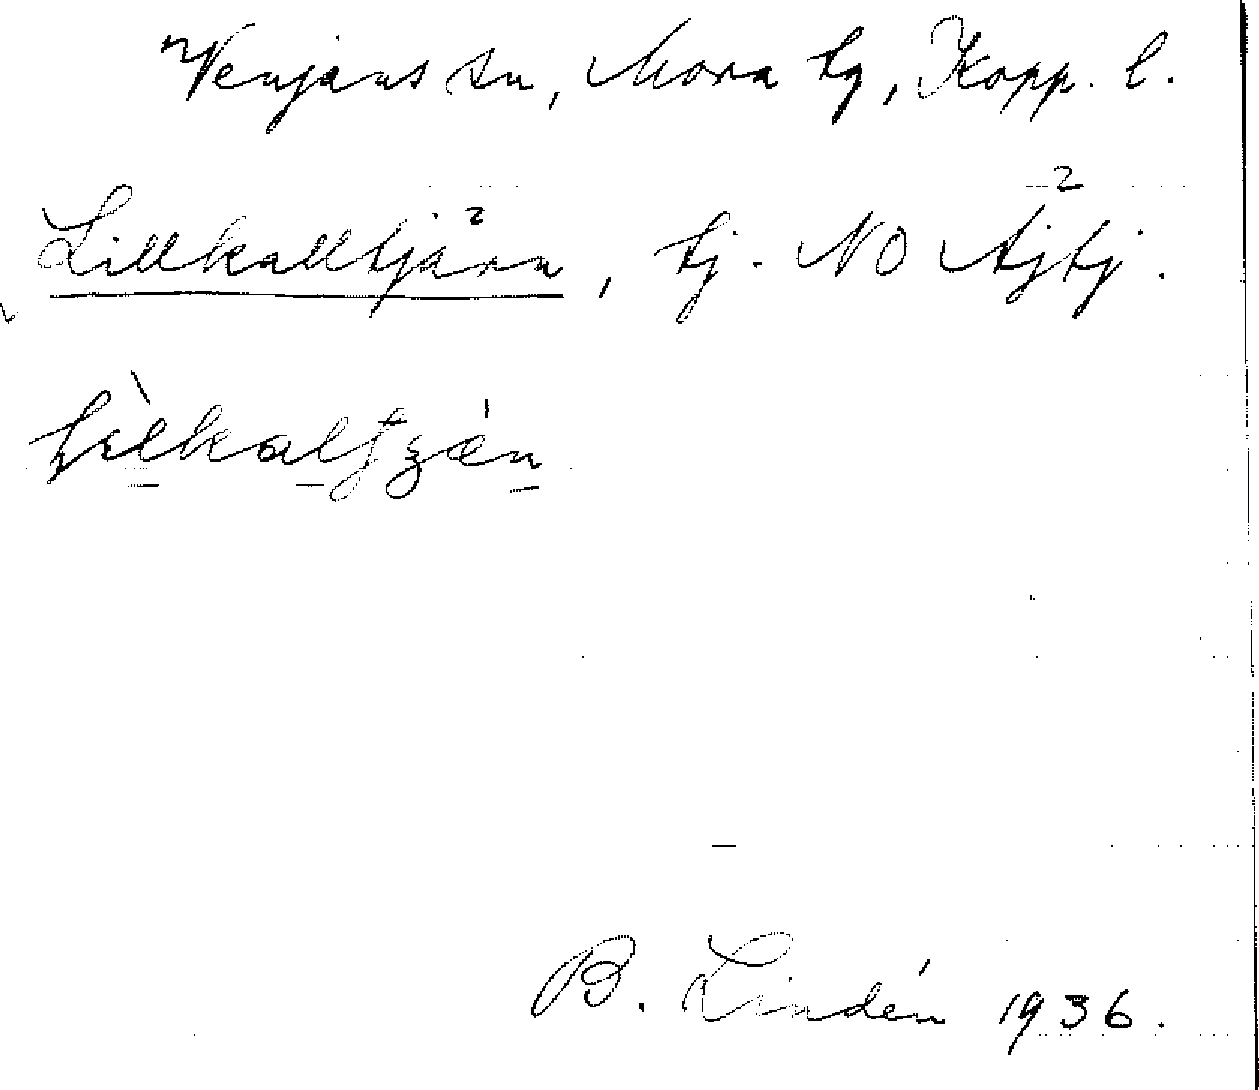 Venjans sn, Mora tg, Kopp. l.
Lillkalltjärn, tj. NO
B. Lindén 1936.